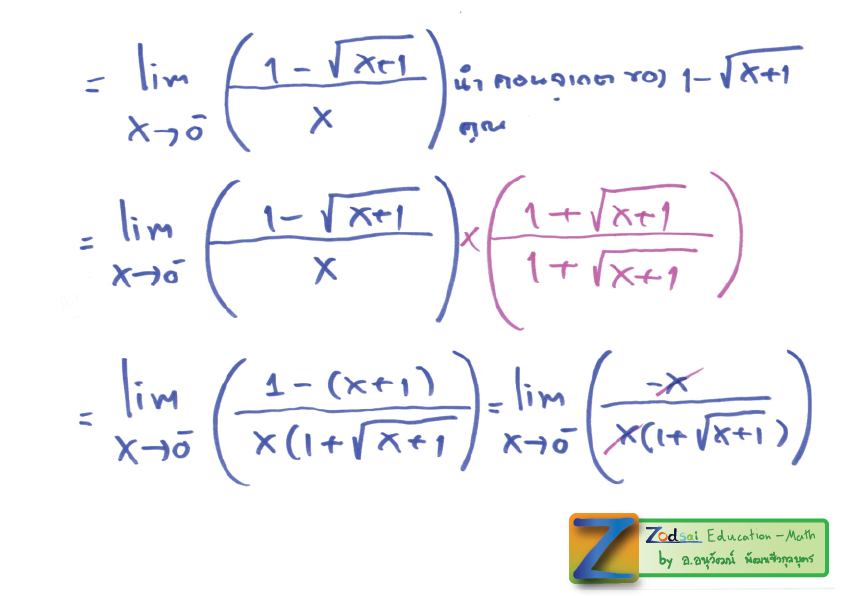 = lim x→0⁻ ( (1 - √(x+1)) / x ) นำ คอนจุเกต ของ 1-√(x+1)
คูณ
= lim x→0⁻ ( (1 - √(x+1)) / x ) × ( (1 + √(x+1)) / (1 + √(x+1)) )
= lim x→0⁻ ( (1 - (x+1)) / (x(1+√(x+1))) ) = lim x→0⁻ ( -x / (x(1+√(x+1))) )
Z
Zodsai Education - Math
by อ.อนุวัฒน์